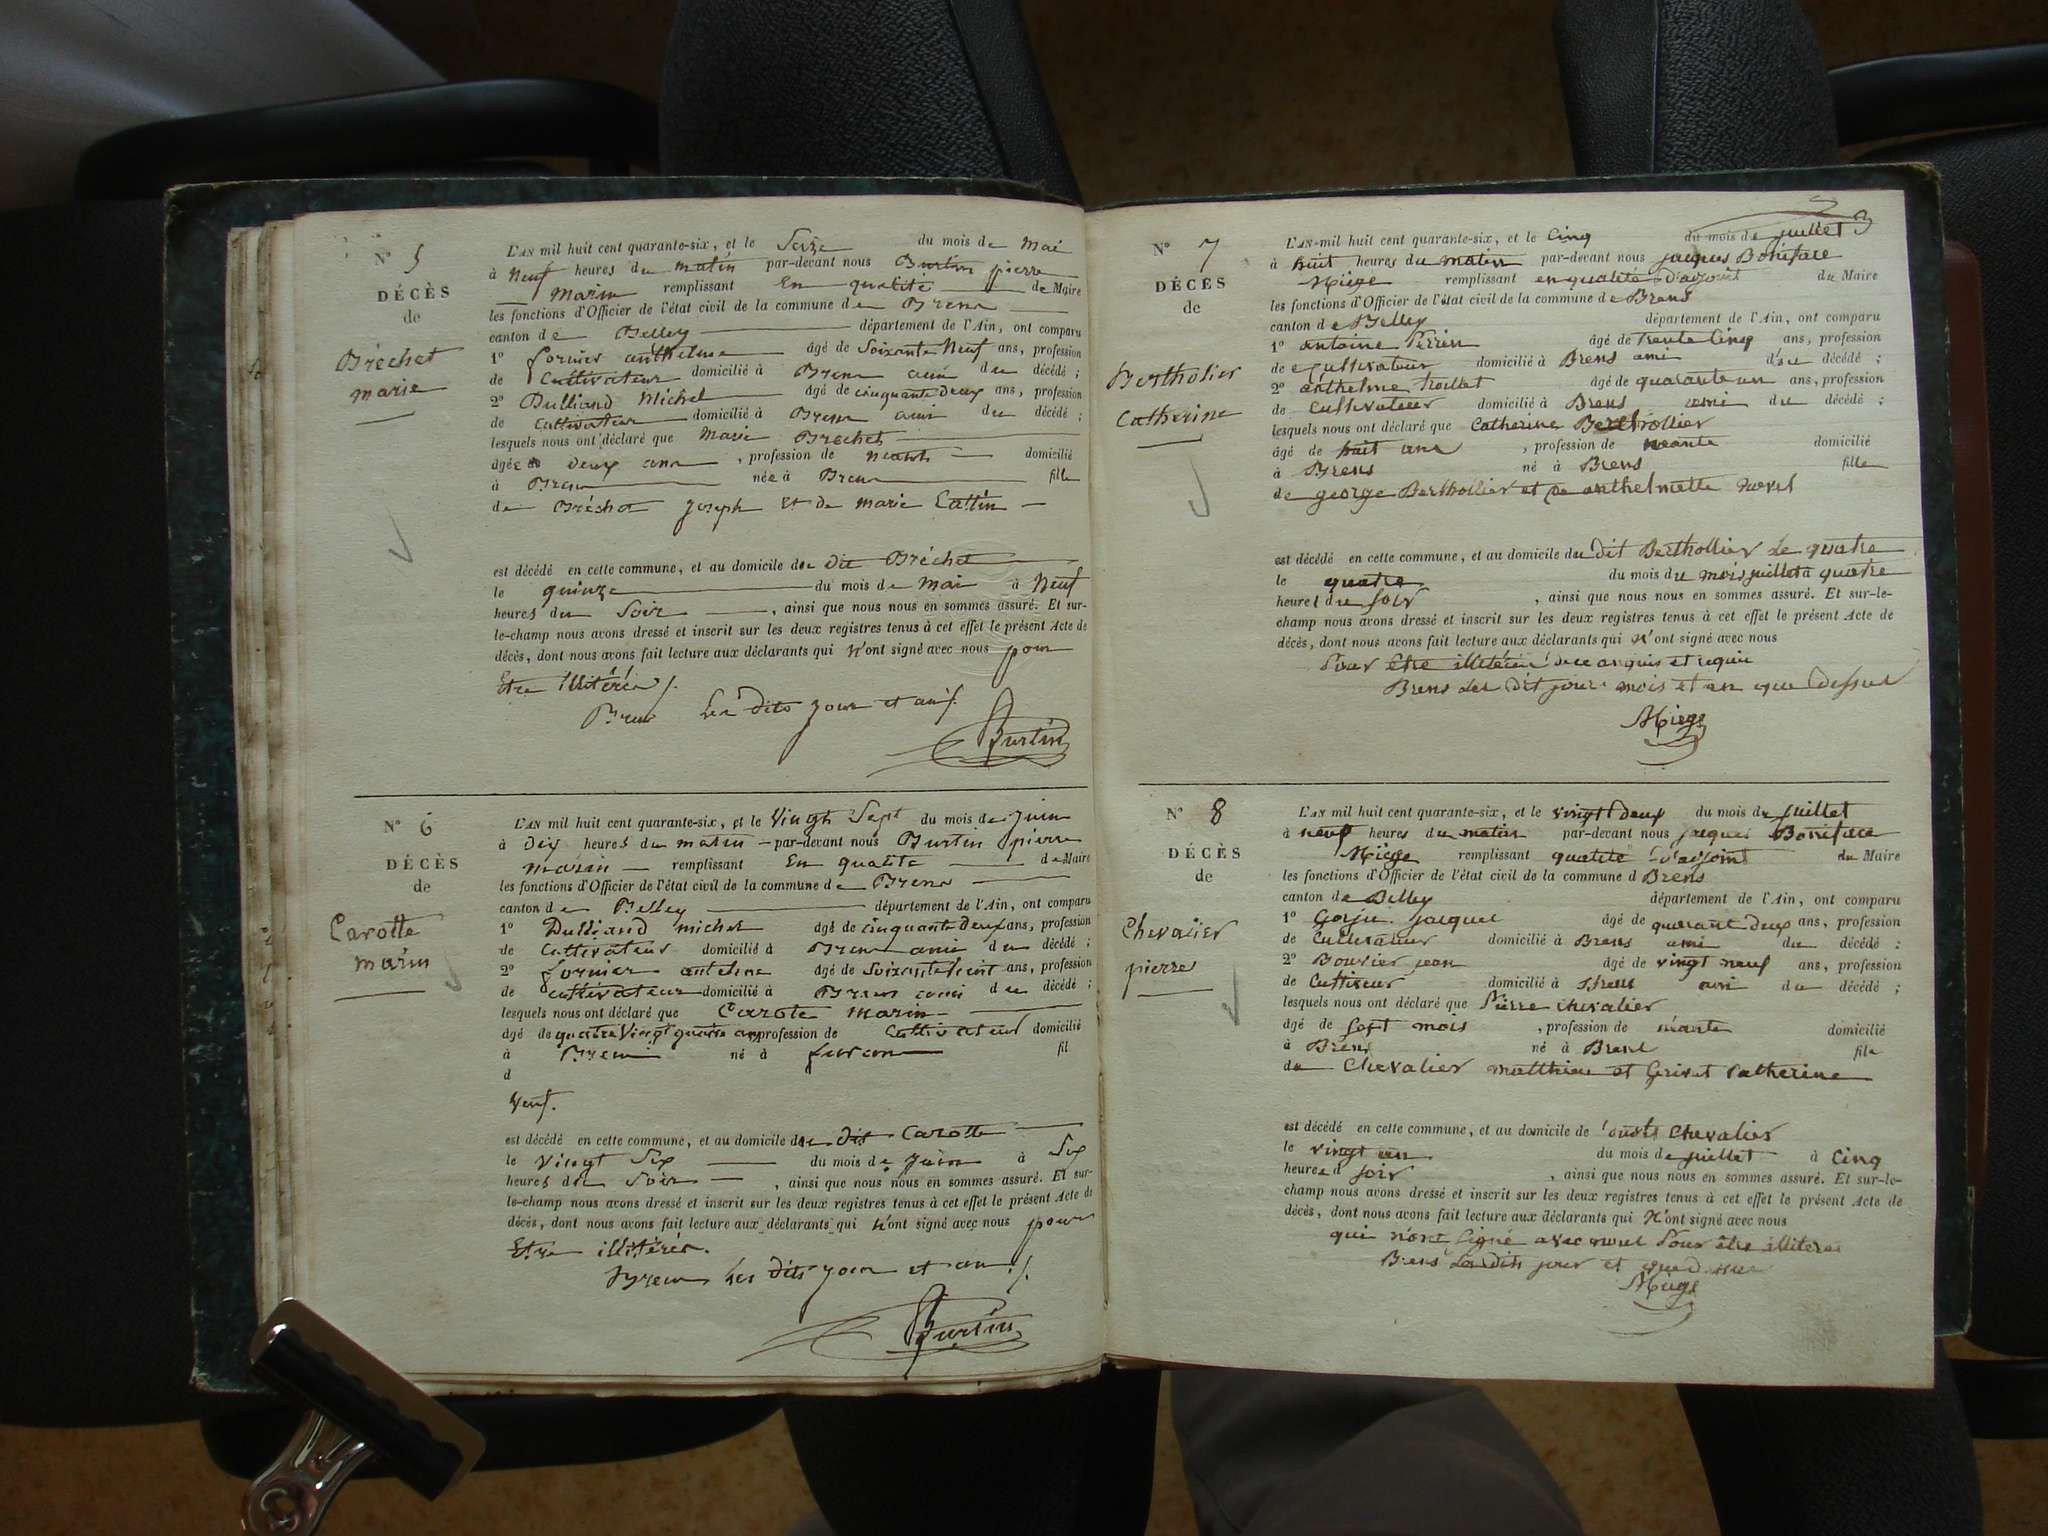 N° 5
DÉCÈS
de
Bréchet
marie
L'AN mil huit cent quarante-six, et le Seize du mois de Mai
à Neuf heures du matin par-devant nous Burtin pierre
Marin remplissant En qualité de Maire
les fonctions d'Officier de l'état civil de la commune de Brens
canton de Belley département de l'Ain, ont comparu
1° fornier anthelme âgé de Soixante Neuf ans, profession
de Cultivateur domicilié à Brens ami du décédé ;
2° Dulliand Michel âgé de cinquante deux ans, profession
de Cultivateur domicilié à Brens ami du décédé ;
lesquels nous ont déclaré que Marie Brechet
âgée de deux ans , profession de neant domicilié
à Brens née à Brens fille
de Bréchet joseph Et de marie Cattin
est décédé en cette commune, et au domicile du dit Bréchet
le quinze du mois de Mai à Neuf
heures du Soir , ainsi que nous nous en sommes assuré. Et sur-
le-champ nous avons dressé et inscrit sur les deux registres tenus à cet effet le présent Acte de
décès, dont nous avons fait lecture aux déclarants qui n'ont signé avec nous pour
Etre illitérés
Brens Les dits jour et an
Burtin
N° 6
DÉCÈS
de
Carotte
marin
L'AN mil huit cent quarante-six, et le Vingt Sept du mois de juin
à Dix heures du matin par-devant nous Burtin pierre
marin remplissant En qualité de Maire
les fonctions d'Officier de l'état civil de la commune de Brens
canton de Belley département de l'Ain, ont comparu
1° Dulliand michel âgé de cinquante deux ans, profession
de Cultivateur domicilié à Brens ami du décédé ;
2° fornier antelme âgé de Soixante ans, profession
de cultivateur domicilié à Brens ami du décédé ;
lesquels nous ont déclaré que Carote marin
âgé de quatre Vingt quatre ans profession de Cultivateur domicilié
à Brens né à fil
d
Veuf.
est décédé en cette commune, et au domicile du dit Carotte
le Vingt Six du mois de juin à Six
heures du Soir , ainsi que nous nous en sommes assuré. Et sur-
le-champ nous avons dressé et inscrit sur les deux registres tenus à cet effet le présent Acte de
décès, dont nous avons fait lecture aux déclarants qui n'ont signé avec nous pour
Etre illitérés.
Brens Les dits jour et an
Burtin
N° 7
DÉCÈS
de
Bertholier
Catherine
L'AN-mil huit cent quarante-six, et le Cinq du mois de juillet
à huit heures du matin par-devant nous jacques Boniface
Miège remplissant en qualité d'adjoint du Maire
les fonctions d'Officier de l'état civil de la commune de Brens
canton de Belley département de l'Ain, ont comparu
1° antoine Perrin âgé de Trente Cinq ans, profession
de Cultivateur domicilié à Brens ami du décédé ;
2° anthelme Trollet âgé de quarante un ans, profession
de Cultivateur domicilié à Brens ami du décédé ;
lesquels nous ont déclaré que Catherine Berthollier
âgé de huit ans , profession de néante domicilié
à Brens né à Brens fille
de george Berthollier et de anthelmette
est décédé en cette commune, et au domicile du dit Berthollier Le quatre
le quatre du mois du mois juillet à quatre
heures du soir , ainsi que nous nous en sommes assuré. Et sur-le-
champ nous avons dressé et inscrit sur les deux registres tenus à cet effet le présent Acte de
décès, dont nous avons fait lecture aux déclarants qui n'ont signé avec nous
Pour être et requis
Brens Les dit jour mois et an que dessus
Miege
N° 8
DÉCÈS
de
Chevalier
pierre
L'AN mil huit cent quarante-six, et le vingt deux du mois de juillet
à neuf heures du matin par-devant nous jacques Boniface
Miège remplissant qualité d'adjoint du Maire
les fonctions d'Officier de l'état civil de la commune d Brens
canton de Belley département de l'Ain, ont comparu
1° Gorju jacques âgé de quarant deux ans, profession
de Cultivateur domicilié à Brens ami du décédé ;
2° Bouvier jean âgé de vingt neuf ans, profession
de domicilié à Brens ami du décédé ;
lesquels nous ont déclaré que Pierre Chevalier
âgé de sept mois , profession de néante domicilié
à Brens né à Brens fils
de Chevalier matthieu et Catherine
est décédé en cette commune, et au domicile de Chevalier
le vingt un du mois de juillet à Cinq
heures d soir , ainsi que nous nous en sommes assuré. Et sur-le-
champ nous avons dressé et inscrit sur les deux registres tenus à cet effet le présent Acte de
décès, dont nous avons fait lecture aux déclarants qui n'ont signé avec nous
qui n'ont signé avec nous Pour être
Brens Les dits jour et
Miege